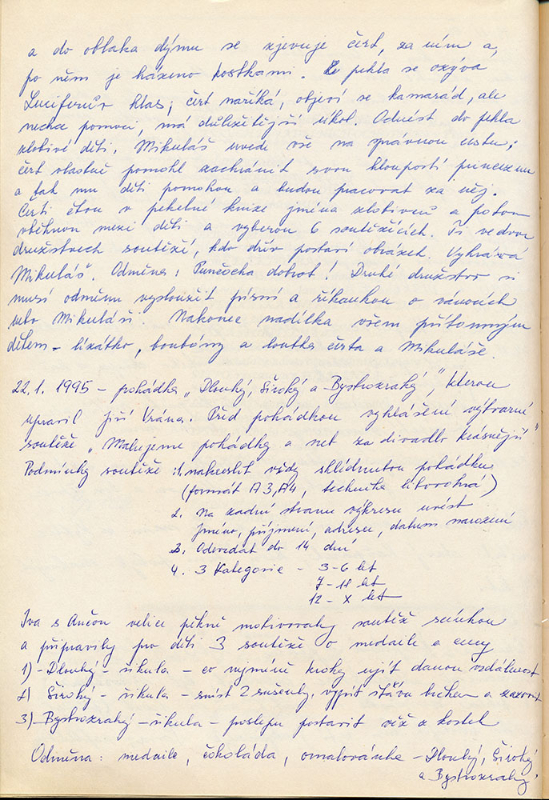 a do oblaka dýmu se zjevuje čert, za ním a,
po něm je házeno kostkami. Z pekla se ozývá
Luciferův hlas; čert naříká, objeví se kamarád, ale
nechce pomoci, má důležitější úkol. Odnést do pekla
zlobivé děti. Mikuláš uvede vše na správnou cestu;
čert vlastně pomohl zachránit svou hloupostí princeznu
a tak mu děti pomohou a budou pracovat za něj.
Čerti čtou v pekelné knize jména zlobivců a potom
vběhnou mezi děti a vyberou 6 soutěžících. Ti ve dvou
družstvech soutěží, kdo dřív postaví obrázek. Vyhrává
Mikuláš. Odměna: Punčocha dobrot! Druhé družstvo si
musí odměnu vysloužit písní a říkankou o vánocích
nebo Mikuláši. Nakonec nadílka všem přítomným
dětem – lízátko, bonbóny a loutka čerta a Mikuláše.
22.1. 1995 – pohádka „Dlouhý, Široký a Bystrozraký", kterou
upravil Jiří Vrána. Před pohádkou vyhlášení výtvarné
soutěže „Malujeme pohádky a net za divadlo krásnější"
Podmínky soutěže: 1. nakreslit vždy shlédnutou pohádku
(formát A3, A4, technika libovolná)
2. Na zadní stranu výkresu uvést
jméno, příjmení, adresu, datum narození
3. Odevzdat do 14 dní
4. 3 Kategorie – 3-6 let
7-11 let
12 - X let
Iva s Ančou velice pěkně motivovaly soutěž scénkou
a připravily pro děti 3 soutěže o medaile a ceny
1) – Dlouhý – šikula – co nejméně kroky ujít danou vzdálenost
2) Široký – šikula – sníst 2 sušenky, vypít šťávu brčkem a
3) – Bystrozraký – šikula – poslepu postavit věž z kostek
Odměna: medaile, čokoláda, omalovánka – Dlouhý, Široký
a Bystrozraký.